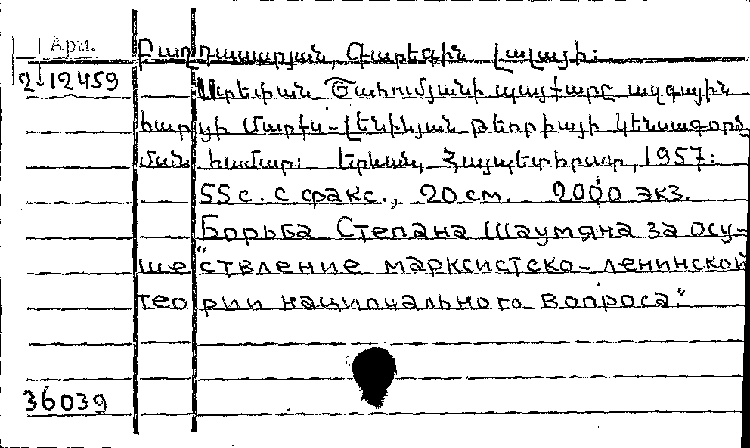 Арм.
2-12459
Բաղդասարյան, Գարեգին Լալայի:
Ստեփան Շահումյանի պայքարը ազգային
հարցի Մարքս-Լենինյան թեորիայի կենսագործ
ման համար: Երևան, Հայպետհրատ, 1957:
55 с. с факс., 20 см. 2000 экз.
"Борьба Степана Шаумяна за осу-
ществление марксистско-ленинской
теории национального вопроса."
36039